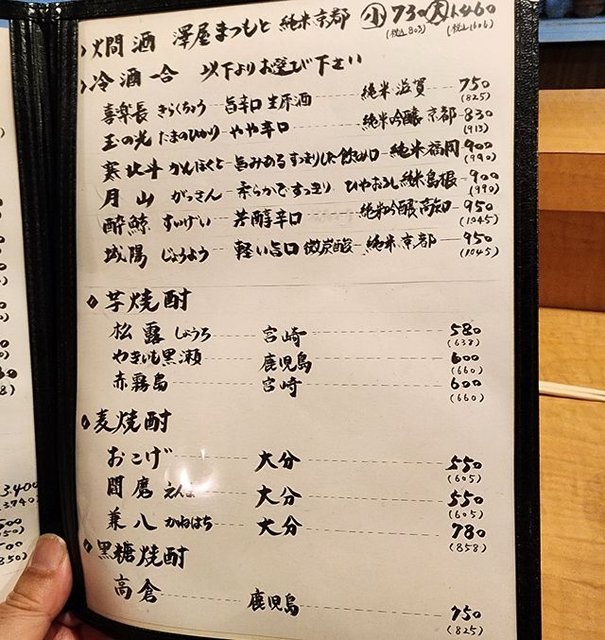 燗酒 澤屋まつもと 純米 京都 小 730 (税込803) 大 1,460 (税込1606)
冷酒一合 以下よりお選び下さい
喜楽長 きらくちょう 旨辛口 生原酒 純米 滋賀 750 (825)
玉の光 たまのひかり やや辛口 純米吟醸 京都 830 (913)
寒北斗 かんほくと 旨みあるすっきりした飲み口 純米 福岡 900 (990)
月山 がっさん 柔らかですっきり ひやおろし純米 島根 900 (990)
酔鯨 すいげい 芳醇辛口 純米吟醸 高知 950 (1045)
城陽 じょうよう 軽い旨口 微炭酸 純米 京都 950 (1045)
芋焼酎
松露 しょうろ 宮崎 580 (638)
やきいも黒瀬 鹿児島 600 (660)
赤霧島 宮崎 600 (660)
麦焼酎
おこげ 大分 550 (605)
閻魔 えんま 大分 550 (605)
兼八 かねはち 大分 780 (858)
黒糖焼酎
高倉 鹿児島 750 (825)
3,400
(3740)